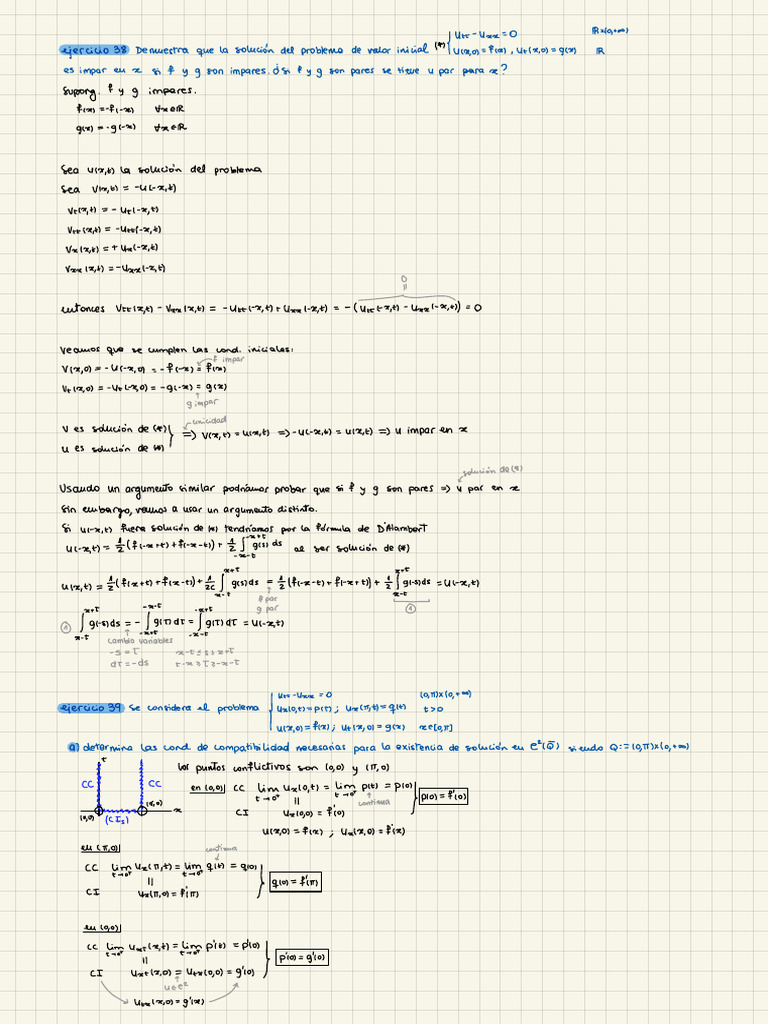 ejercicio 38 Demuestra que la solución del problema de valor inicial (*) { Utt - Uxx = 0 ℝx(0,+∞)
U(x,0) = f(x) , Ut(x,0) = g(x) ℝ
es impar en x si f y g son impares. ¿Si f y g son pares se tiene u par para x?
Supong. f y g impares.
f(x) = -f(-x) ∀x∈ℝ
g(x) = -g(-x) ∀x∈ℝ
Sea u(x,t) la solución del problema
Sea V(x,t) = -u(-x,t)
Vt(x,t) = - ut(-x,t)
Vtt(x,t) = -utt(-x,t)
Vx(x,t) = + ux(-x,t)
Vxx(x,t) = -uxx(-x,t)
0
"
entonces Vtt(x,t) - Vxx(x,t) = -utt(-x,t) + uxx(-x,t) = - (utt(-x,t) - uxx(-x,t)) = 0
Veamos que se cumplen las cond. iniciales:
f impar
V(x,0) = -u(-x,0) = -f(-x) = f(x)
Vt(x,0) = -ut(-x,0) = -g(-x) = g(x)
g impar
unicidad
V es solución de (*)
u es solución de (*) } => V(x,t) = u(x,t) => -u(-x,t) = u(x,t) => u impar en x
solución de (*)
Usando un argumento similar podríamos probar que si f y g son pares => u par en x
Sin embargo, vamos a usar un argumento distinto.
Si u(-x,t) fuera solución de (*) tendríamos por la fórmula de D'Alambert
u(-x,t) = 1/2 (f(-x+t) + f(-x-t)) + 1/2 ∫_{-x-t}^{-x+t} g(s) ds al ser solución de (*)
u(x,t) = 1/2 (f(x+t) + f(x-t)) + 1/2c ∫_{x-t}^{x+t} g(s) ds = 1/2 (f(-x-t) + f(-x+t)) + 1/2 ∫_{x-t}^{x+t} g(-s) ds = u(-x,t)
f par
g par
①
① ∫_{x-t}^{x+t} g(-s) ds = - ∫_{-x+t}^{-x-t} g(τ) dτ = ∫_{-x-t}^{-x+t} g(τ) dτ = u(-x,t)
cambio variables
-s = τ x-t ≤ s ≤ x+t
dτ = -ds t-x ≥ τ ≥ -x-t
ejercicio 39 Se considera el problema { utt - uxx = 0 (0,π)x(0,+∞)
ux(0,t) = p(t) ; ux(π,t) = q(t) t>0
u(x,0) = f(x) ; ut(x,0) = g(x) x∈[0,π]
a) determina las cond de compatibilidad necesarias para la existencia de solución en C²(Q̄) siendo Q := (0,π)x(0,+∞)
t
CC CC
(0,0) (π,0) x
(CIs)
los puntos conflictivos son (0,0) y (π,0)
en (0,0) CC lim_{t→0⁺} ux(0,t) = lim_{t→0⁺} p(t) = p(0)
continua
CI ux(0,0) = f'(0)
p(0) = f'(0)
u(x,0) = f(x) ; ux(x,0) = f'(x)
en (π,0)
continua
CC lim_{t→0⁺} ux(π,t) = lim_{t→0⁺} q(t) = q(0)
CI ux(π,0) = f'(π)
q(0) = f'(π)
en (0,0)
CC lim_{t→0⁺} uxt(x,t) = lim_{t→0⁺} p'(t) = p'(0)
CI uxt(x,0) = utx(0,0) = g'(0)
p'(0) = g'(0)
u∈C²
utx(x,0) = g'(x)